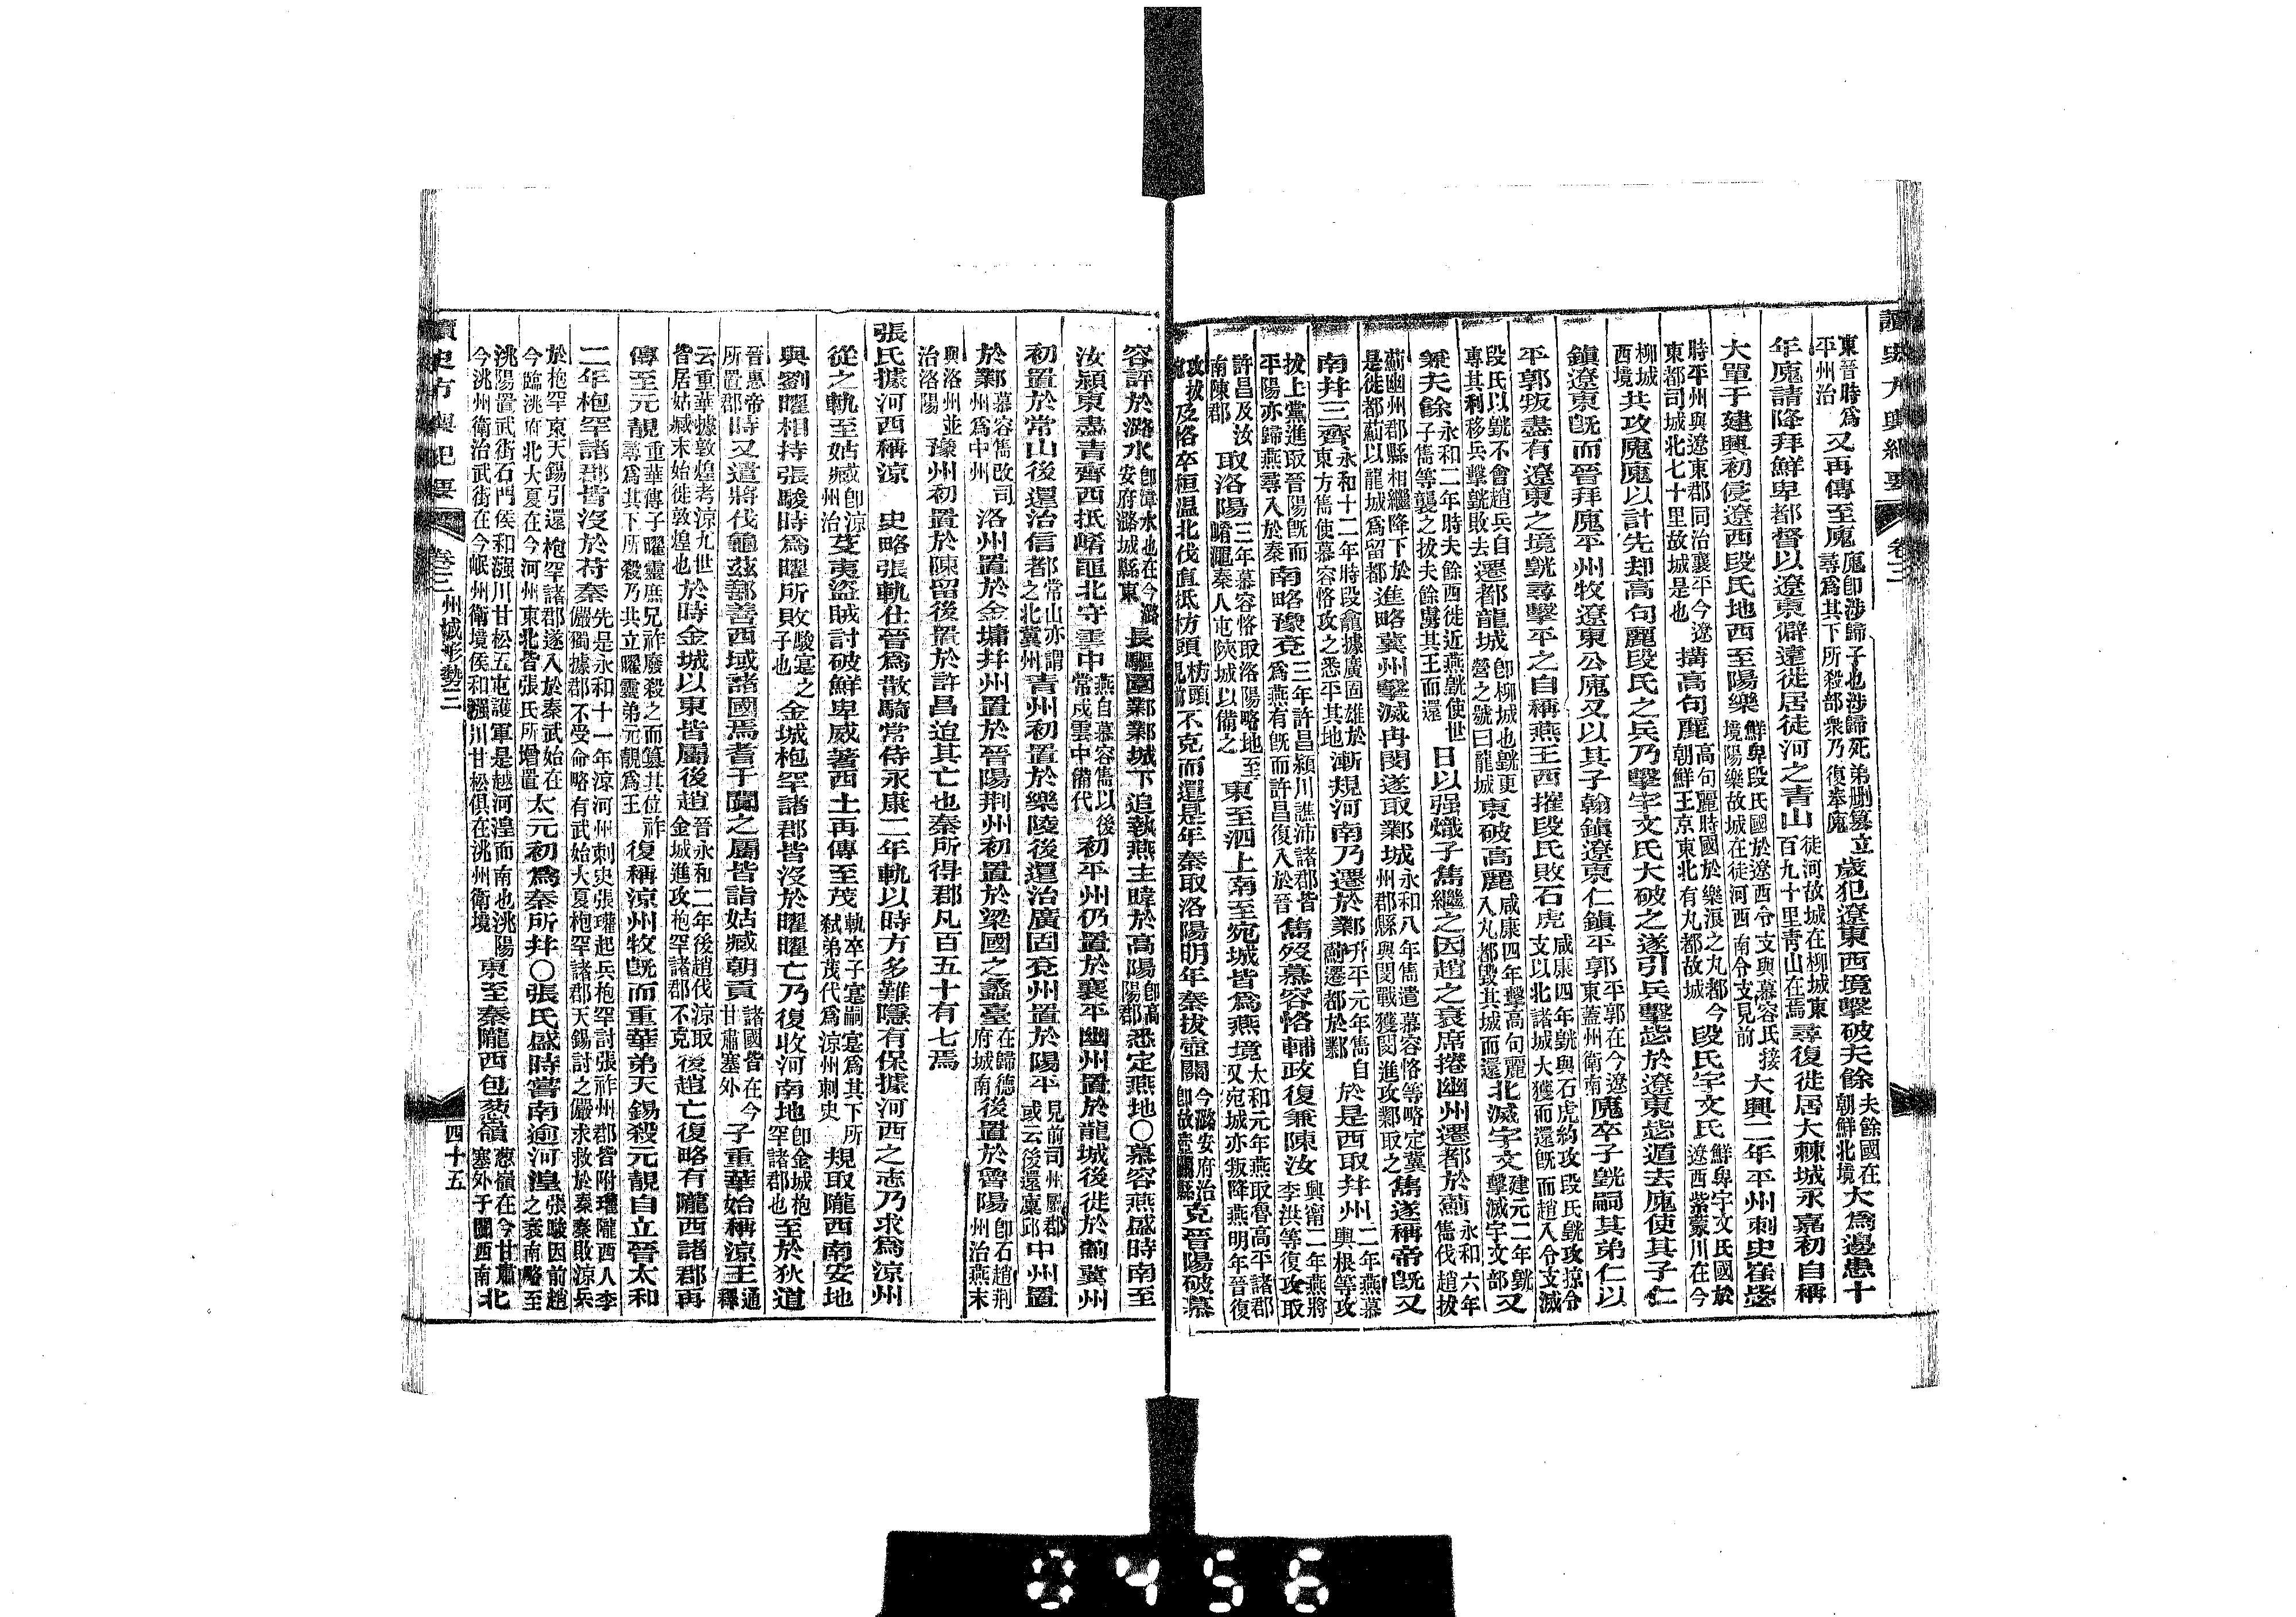 讀史方輿紀要 卷三
東晉時爲平州治 又再傳至廆 廆卽涉歸子也涉歸死弟刪篡立尋爲其下所殺部衆乃復奉廆 歲犯遼東西境擊破夫餘 夫餘國在朝鮮北境 大爲邊患十
年廆請降拜鮮卑都督以遼東僻遠徙居徒河之青山 徒河故城在柳城東百九十里青山在焉 尋復徙居大棘城永嘉初自稱
大單于建興初侵遼西段氏地西至陽樂 鮮卑段氏國於遼西令支與慕容氏接境陽樂故城在徒河西南令支見前 大興二年平州刺史崔毖
時平州與遼東郡同治襄平今遼東都司城北七十里故城是也 搆高句麗 高句麗時國於樂浪之丸都今朝鮮王京東北有丸都故城 段氏宇文氏 鮮卑宇文氏國於遼西紫蒙川在今
柳城西境 共攻廆廆以計先却高句麗段氏之兵乃擊宇文氏大破之遂引兵擊毖於遼東毖遁去廆使其子仁
鎭遼東旣而晉拜廆平州牧遼東公廆又以其子翰鎭遼東仁鎭平郭 平郭在今遼東蓋州衛南 廆卒子皝嗣其弟仁以
平郭叛盡有遼東之境皝尋擊平之自稱燕王西摧段氏敗石虎 咸康四年皝與石虎約攻段氏皝攻掠令支以北諸城大獲而還旣而趙入令支滅
段氏以皝不會趙兵自專其利移兵擊皝敗去 遷都龍城 卽柳城也皝更營之號曰龍城 東破高麗 咸康四年擊高句麗入丸都毀其城而還 北滅宇文 建元二年皝擊滅宇文部 又
兼夫餘 永和二年時夫餘西徙近燕皝使世子儁等襲之拔夫餘虜其王而還 日以强熾子儁繼之因趙之衰席捲幽州遷都於薊 永和六年儁伐趙拔
薊幽州郡縣相繼降下於是徙都薊以龍城爲留都 進略冀州擊滅冉閔遂取鄴城 永和八年儁遣慕容恪等略定冀州郡縣與閔戰獲閔進攻鄴取之 儁遂稱帝旣又
南幷三齊 永和十二年時段龕據廣固雄於東方儁使慕容恪攻之悉平其地 漸規河南乃遷於鄴 升平元年儁自薊遷都於鄴 於是西取幷州 二年燕慕輿根等攻
拔上黨進取晉陽旣而平陽亦歸燕尋入於秦 南略豫兗 三年許昌潁川譙沛諸郡皆爲燕有旣而許昌復入於晉 儁歿慕容恪輔政復兼陳汝 興甯二年燕將李洪等復攻取
許昌及汝南陳郡 取洛陽 三年慕容恪取洛陽略地至崤澠秦人屯陝城以備之 東至泗上南至宛城皆爲燕境 太和元年燕取魯高平諸郡又宛城亦叛降燕明年晉復
攻拔宛 及恪卒桓温北伐直抵枋頭 枋頭見前 不克而還是年秦取洛陽明年秦拔壺關 今潞安府治卽故壺關縣 克晉陽破慕
容評於潞水 卽漳水也在今潞安府潞城縣東 長驅圍鄴鄴城下追執燕主暐於高陽 卽高陽郡 悉定燕地○慕容燕盛時南至
汝潁東盡青齊西抵崤黽北守雲中 燕自慕容儁以後常戍雲中備代 初平州仍置於襄平幽州置於龍城後徙於薊冀州
初置於常山後還治信都 常山亦謂之北冀州 青州初置於樂陵後還治廣固兗州置於陽平 見前司州屬郡或云後還廩邱 中州置
於鄴 慕容儁改司州爲中州 洛州置於金墉幷州置於晉陽荆州初置於梁國之蠡臺 在歸德府城南 後置於魯陽 卽石趙荆州治燕末
與洛州並治洛陽 豫州初置於陳留後置於許昌迨其亡也秦所得郡凡百五十有七焉
張氏據河西稱涼 史略張軌仕晉爲散騎常侍永康二年軌以時方多難隱有保據河西之志乃求爲涼州
從之軌至姑臧 卽涼州治 芟夷盜賊討破鮮卑威著西土再傳至茂 軌卒子寔嗣寔爲其下所弑弟茂代爲涼州刺史 規取隴西南安地
與劉曜相持張駿時爲曜所敗 駿寔之子也 金城枹罕諸郡皆沒於曜曜亡乃復收河南地 卽金城枹罕諸郡也 至於狄道
晉惠帝時所置郡 又遣將伐龜茲鄯善西域諸國焉耆于闐之屬皆詣姑臧朝貢 諸國皆在今甘肅塞外 子重華始稱涼王 通釋
云重華據敦煌考涼九世皆居姑臧末始徙敦煌也 於時金城以東皆屬後趙 晉永和二年後趙伐涼取金城進攻枹罕諸郡不克 後趙亡復略有隴西諸郡再
傳至元靚 重華傳子曜靈庶兄祚廢殺之而篡其位祚尋爲其下所殺乃共立曜靈弟元靚爲王 復稱涼州牧旣而重華弟天錫殺元靚自立晉太和
二年枹罕諸郡皆沒於苻秦 先是永和十一年涼河州刺史張瓘起兵枹罕討張祚州郡皆附瓘隴西人李儼獨據郡不受命略有武始大夏枹罕諸郡天錫討之儼求救於秦秦敗涼兵
於枹罕東天錫引還枹罕諸郡遂入於秦武始在今臨洮府北大夏在今河州東北皆張氏所增置 太元初爲秦所幷○張氏盛時嘗南逾河湟 張駿因前趙之衰南略至
洮陽置武街石門侯和漒川甘松五屯護軍是越河湟而南也洮陽今洮州衛治武街在今岷州衛境侯和漒川甘松俱在洮州衛境 東至秦隴西包葱嶺 葱嶺在今甘肅塞外于闐西南 北
讀史方輿紀要 卷三 州域形勢三 四十五
0456